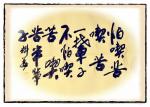 怕喫苦
喫苦
一輩子
不怕喫
苦喫
苦半輩
子